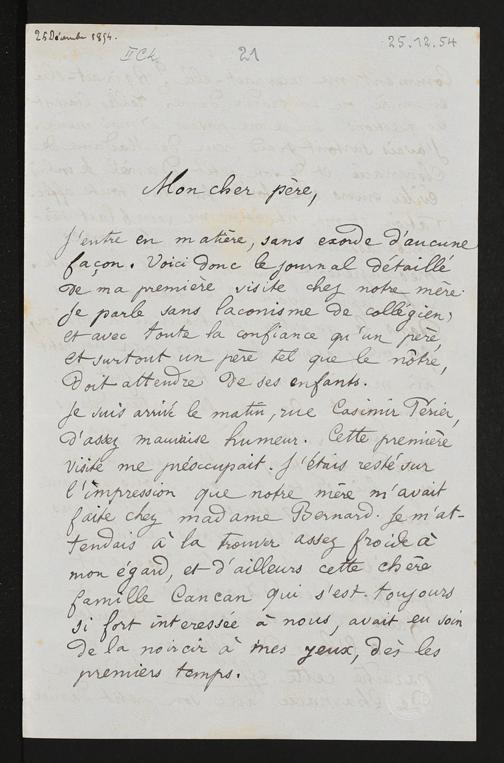 25 Décembre 1854.
25.12.54
II C
21
Mon cher père,
J'entre en matière, sans exorde d'aucune
façon. Voici donc le journal détaillé
de ma première visite chez notre mère.
Je parle sans laconisme de collégien,
et avec toute la confiance qu'un père,
et surtout un père tel que le nôtre,
doit attendre de ses enfants.
Je suis arrivé le matin, rue Casimir Périer,
d'assez mauvaise humeur. Cette première
visite me préoccupait. J'étais resté sur
l'impression que notre mère m'avait
faite chez madame Bernard. Je m'at-
tendais à la trouver assez froide à
mon égard, et d'ailleurs cette chère
famille Cancan qui s'est toujours
si fort interessée à nous, avait eu soin
de la noircir à mes yeux, dès les
premiers temps.